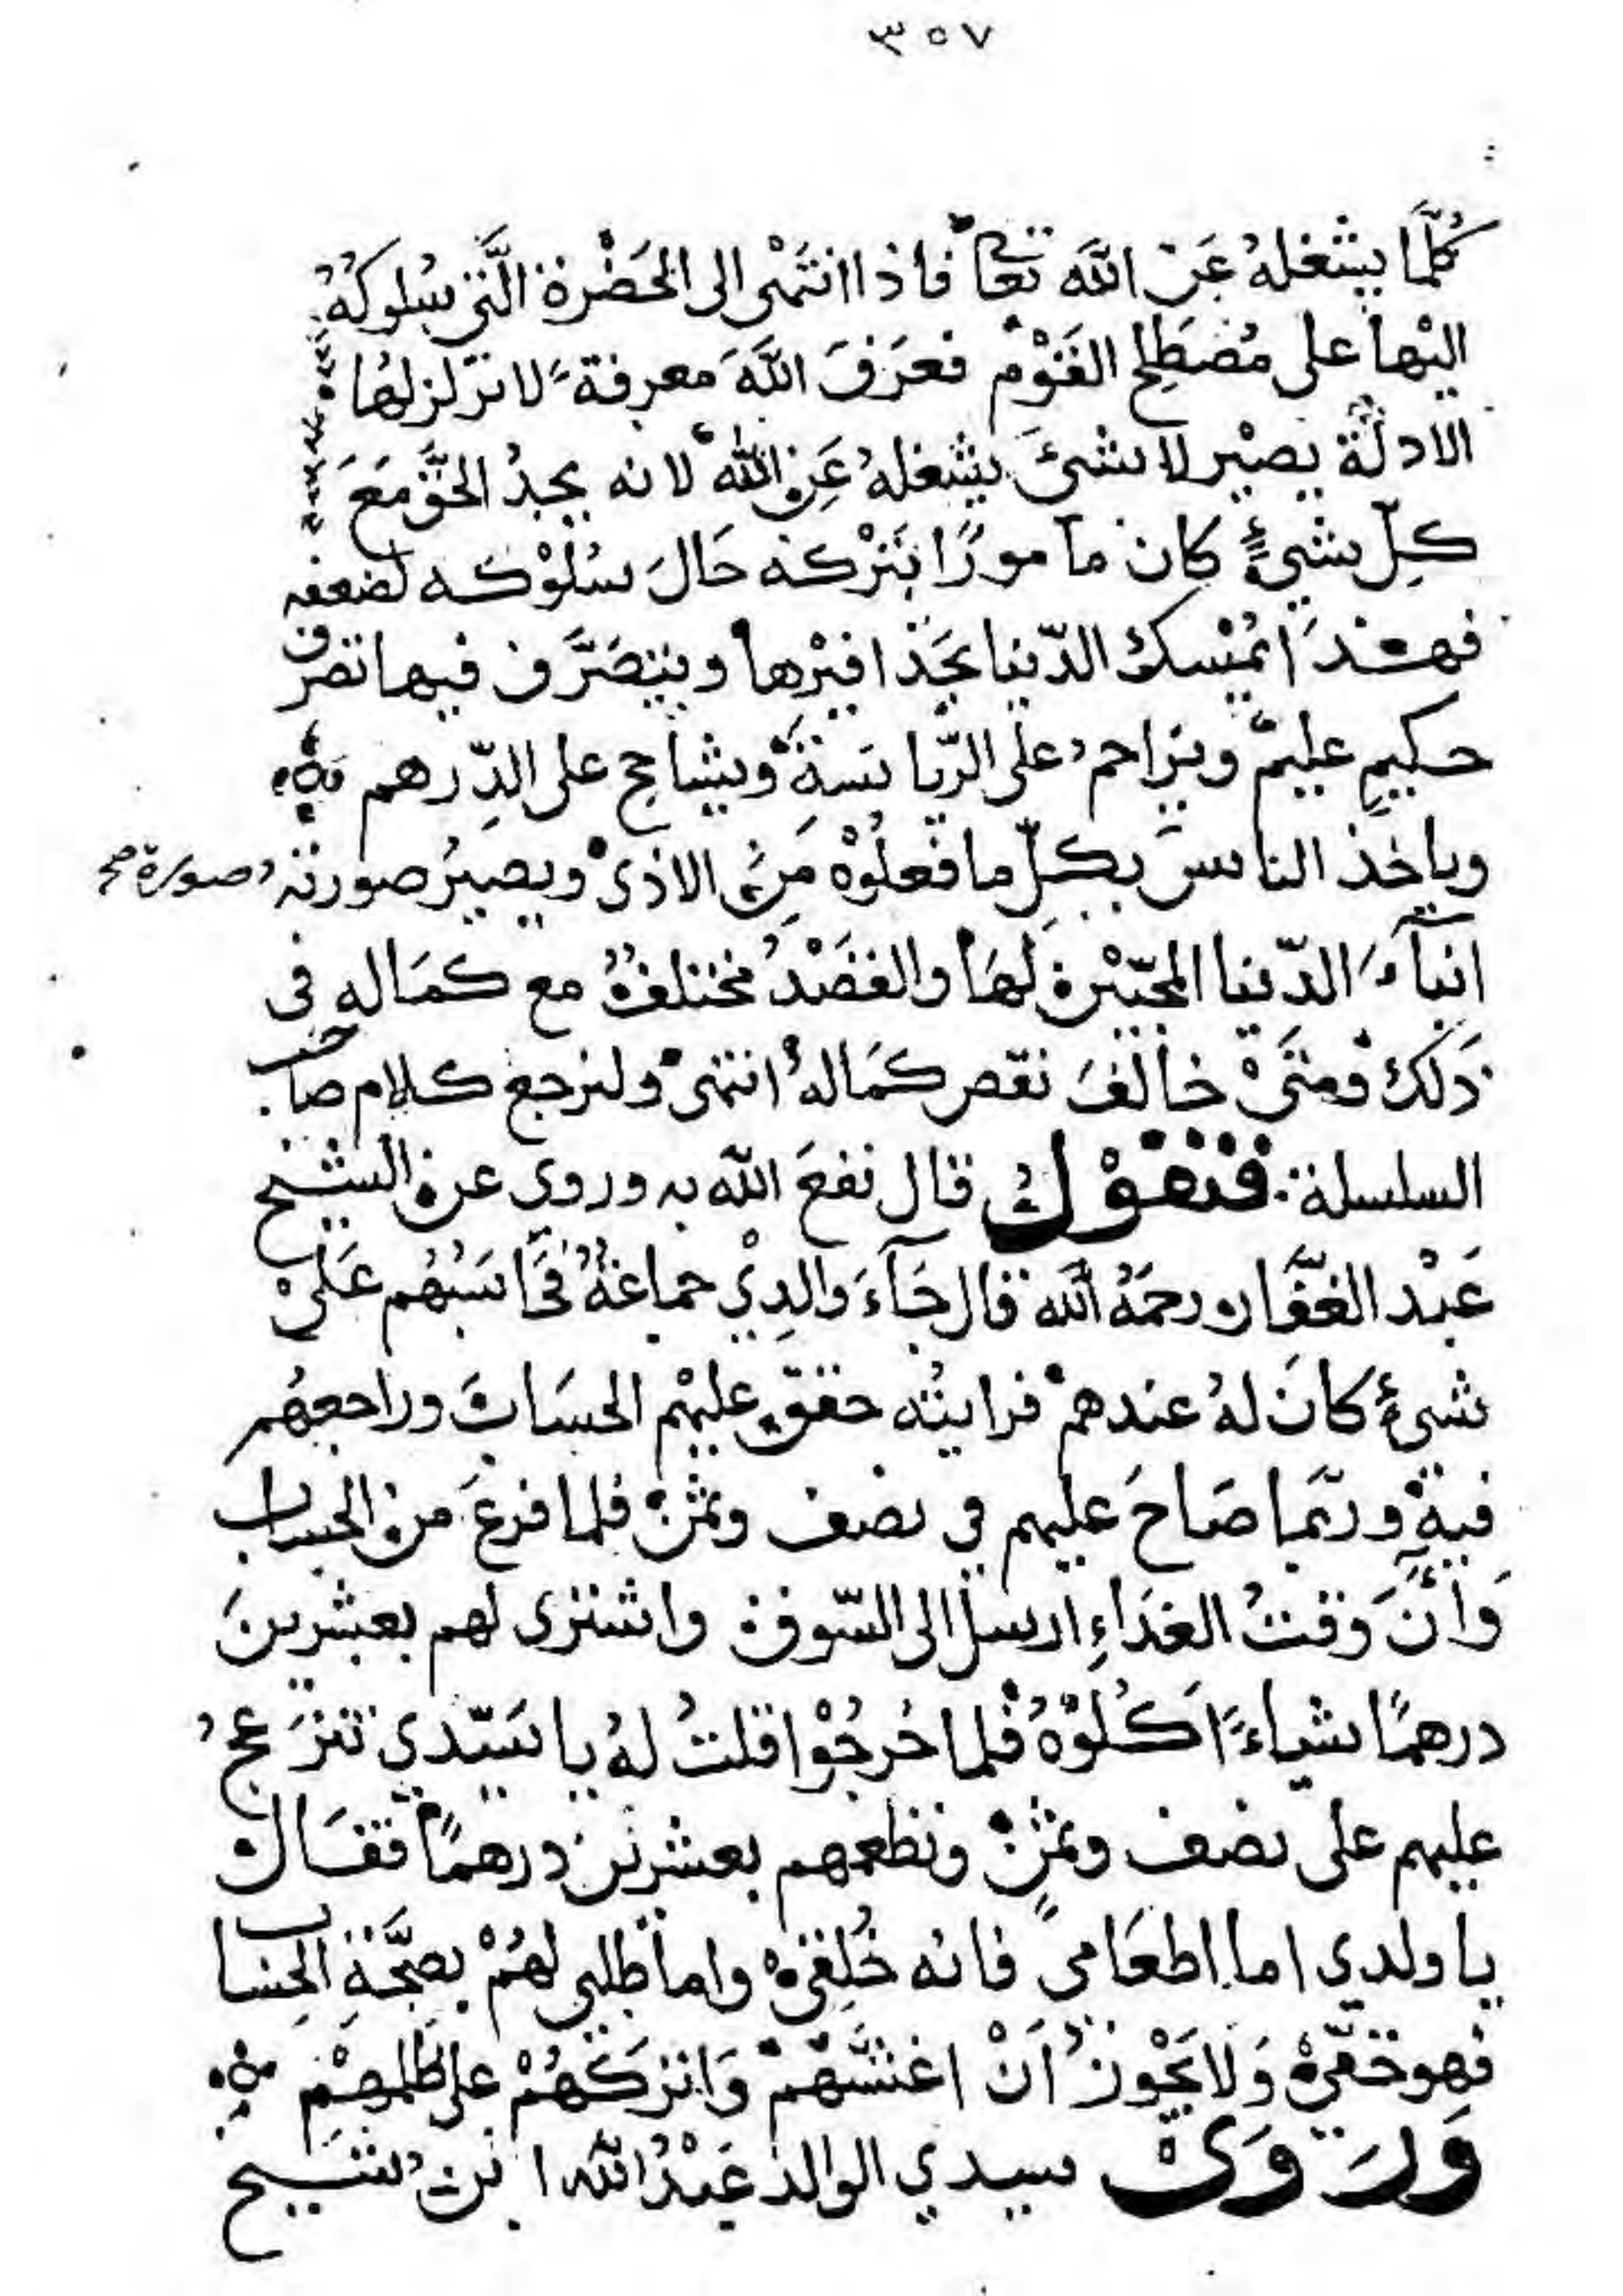 ٣٥٧
كُلَّمَا يشغلهُ عَنْ اللَّه تعا فاذا انتَهى الى الحَضْرة الَّتي سُلوكُهُ
اليْها على مُصْطَلح القَوْم فعَرَفَ اللَّهَ معرفةً لا تزلزلها
الادلّة يصيْر لا شئَ يشغلهُ عَن اللّه لانه يجدُ الحقَّ مَعَ
كلِّ شيءٍ كان مأمورًا بتَرْكه حَالَ سُلُوْكه لضعفه
فهذا يُمْسك الدّنيا بحَذافيْرها ويتصَرَّف فيها تصرف
حكيمٍ عليمٍ ويزاحمُ على الرّياسَةِ ويشاحح على الدِّرهم
وياخذ الناس بكلِّ ما فعلُوْه مِنَ الاذى ويصيرُ صورته صورة صح
ابنآءَ الدّنيا المحبّيْن لهَا والقصْدُ مختلفٌ مع كمَاله فى
ذلك فمتَىْ خالفَ نقص كمَالهُ انتهى ولنرجع كلام صاحب
السلسلة فنقوْل قال نفعَ اللّه به وروي عن الشيخ
عَبْد الغفَّار رحمَهُ اللَّه قال جَآءَ والدِيْ جماعَةٌ فحَاسَبُهُم عَلَىْ
شىءٍ كانَ لهُ عندهمْ فرايتُه حققّ عليهْم الحسَابَ وراجعهُم
فيهْ وربّما صَاحَ عليهم في نصف وثمْن فلما فرغَ من الحساب
وَأنَّ وَقتُ الغدَاءِ ارسل الى السّوق واشترى لهم بعشرينَ
درهمًا شياءً اَكَلُوْهُ فلما خرجُوْا قلتُ لهُ يا سَيّدي تنزَعجُ
عليهم على نصف وثمْنٍ وتطعمهم بعشريْن درهمًا فقَالْ
يا ولدي اما اطعَامى فانه خُلِقىْ واما طلبى لهُمْ بصحَّةِ الحِسَاب
فهو حَقّىْ وَلا يَجْوزُ اَنْ اغشَّهُمْ وَاتركَهُمْ على ظلمهِمْ
وَرَوَىْ سيدي الوالد عَبْدُ اللّه ابنُ شيخ